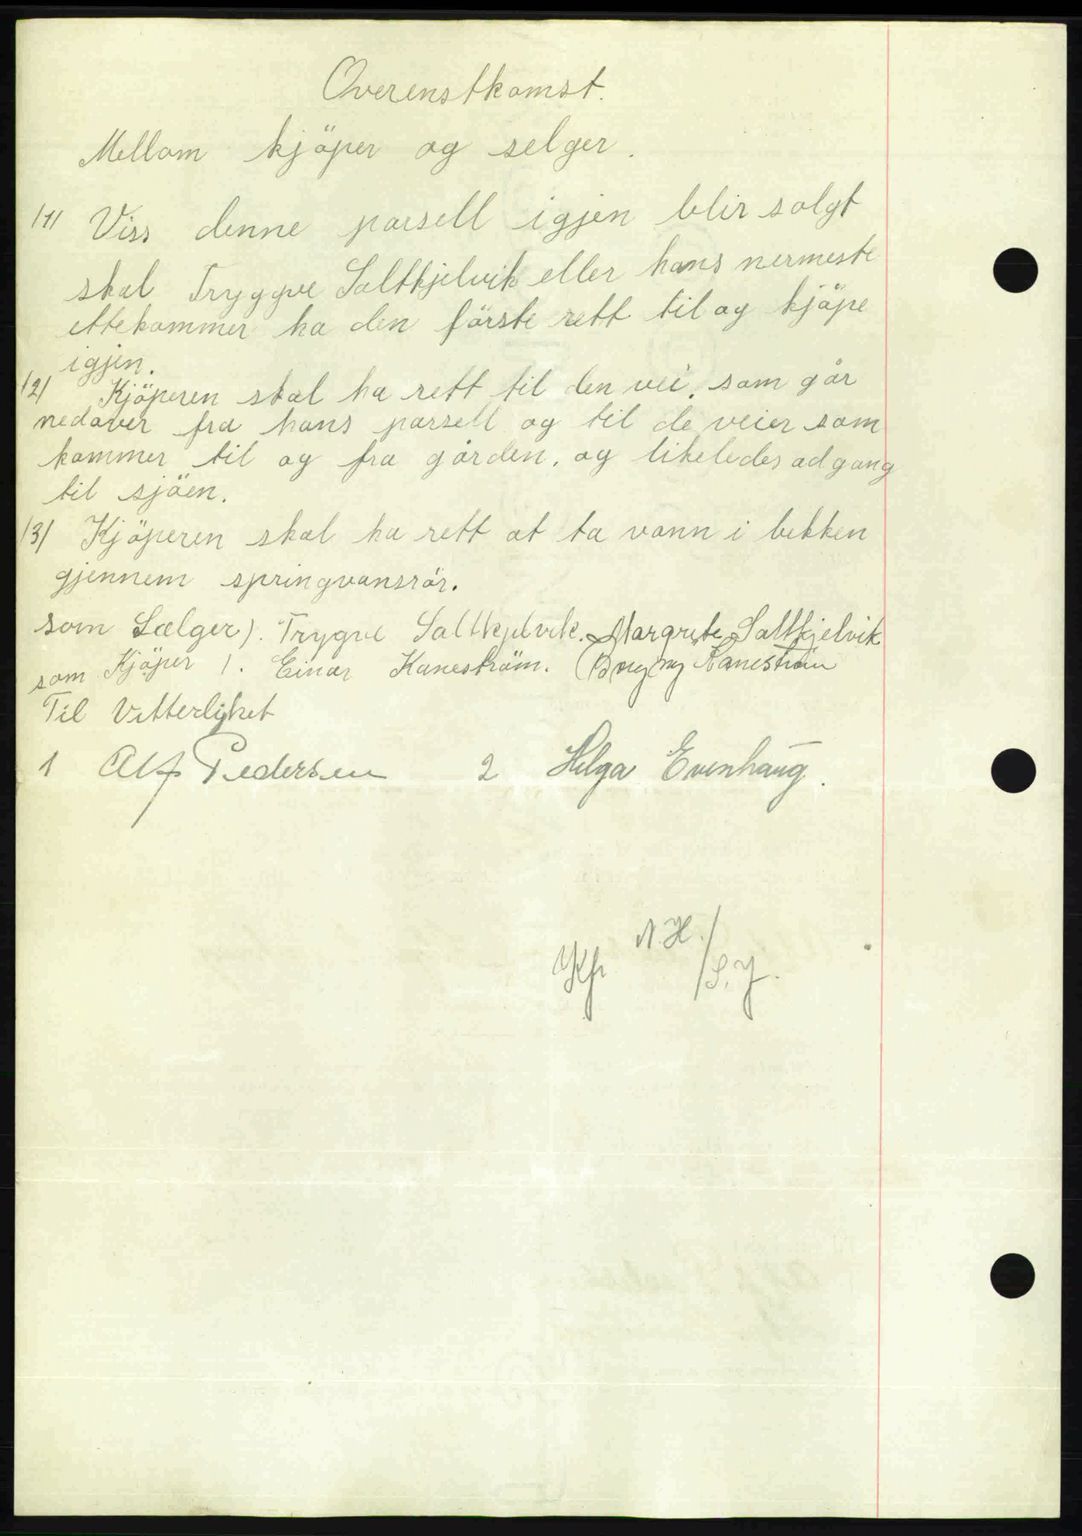 Overenstkomst.
Mellom kjöper og selger.
/1/ Viss denne parsell igjen blir solgt
skal Tryggve Saltkjelvik eller hans nermeste
ettekommer ha den förste rett til og kjöpe
igjen.
/2/ Kjöperen skal ha rett til den vei, som går
nedover fra hans parsell og til de veier som
kommer til og fra gården, og likeledes adgang
til sjöen.
/3/ Kjöperen skal ha rett at ta vann i bekken
gjennem springvansrör.
som Sælger). Trygve Saltkjelvik. Margrete Saltkjelvik
som Kjöper /. Einar Kaneström. Kaneström
Til Vitterlighet
1 Alf Pedersen 2 Helga Evenhaug.
N.H./
Kfr /S.J.